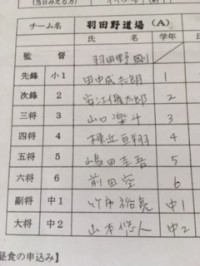 チーム名 羽田野道場 (A)
氏 名 学年
監督 羽田野
先鋒 小1 田中 太朗 1
次鋒 小2 太郎 2
三将 小3 山口 3
四将 小4 4
五将 小5 嶋田圭吾 5
六将 小6 前田空 6
副将 中1 竹内裕亮 中1
大将 中2 山本悠人 中2
昼食の申込み】